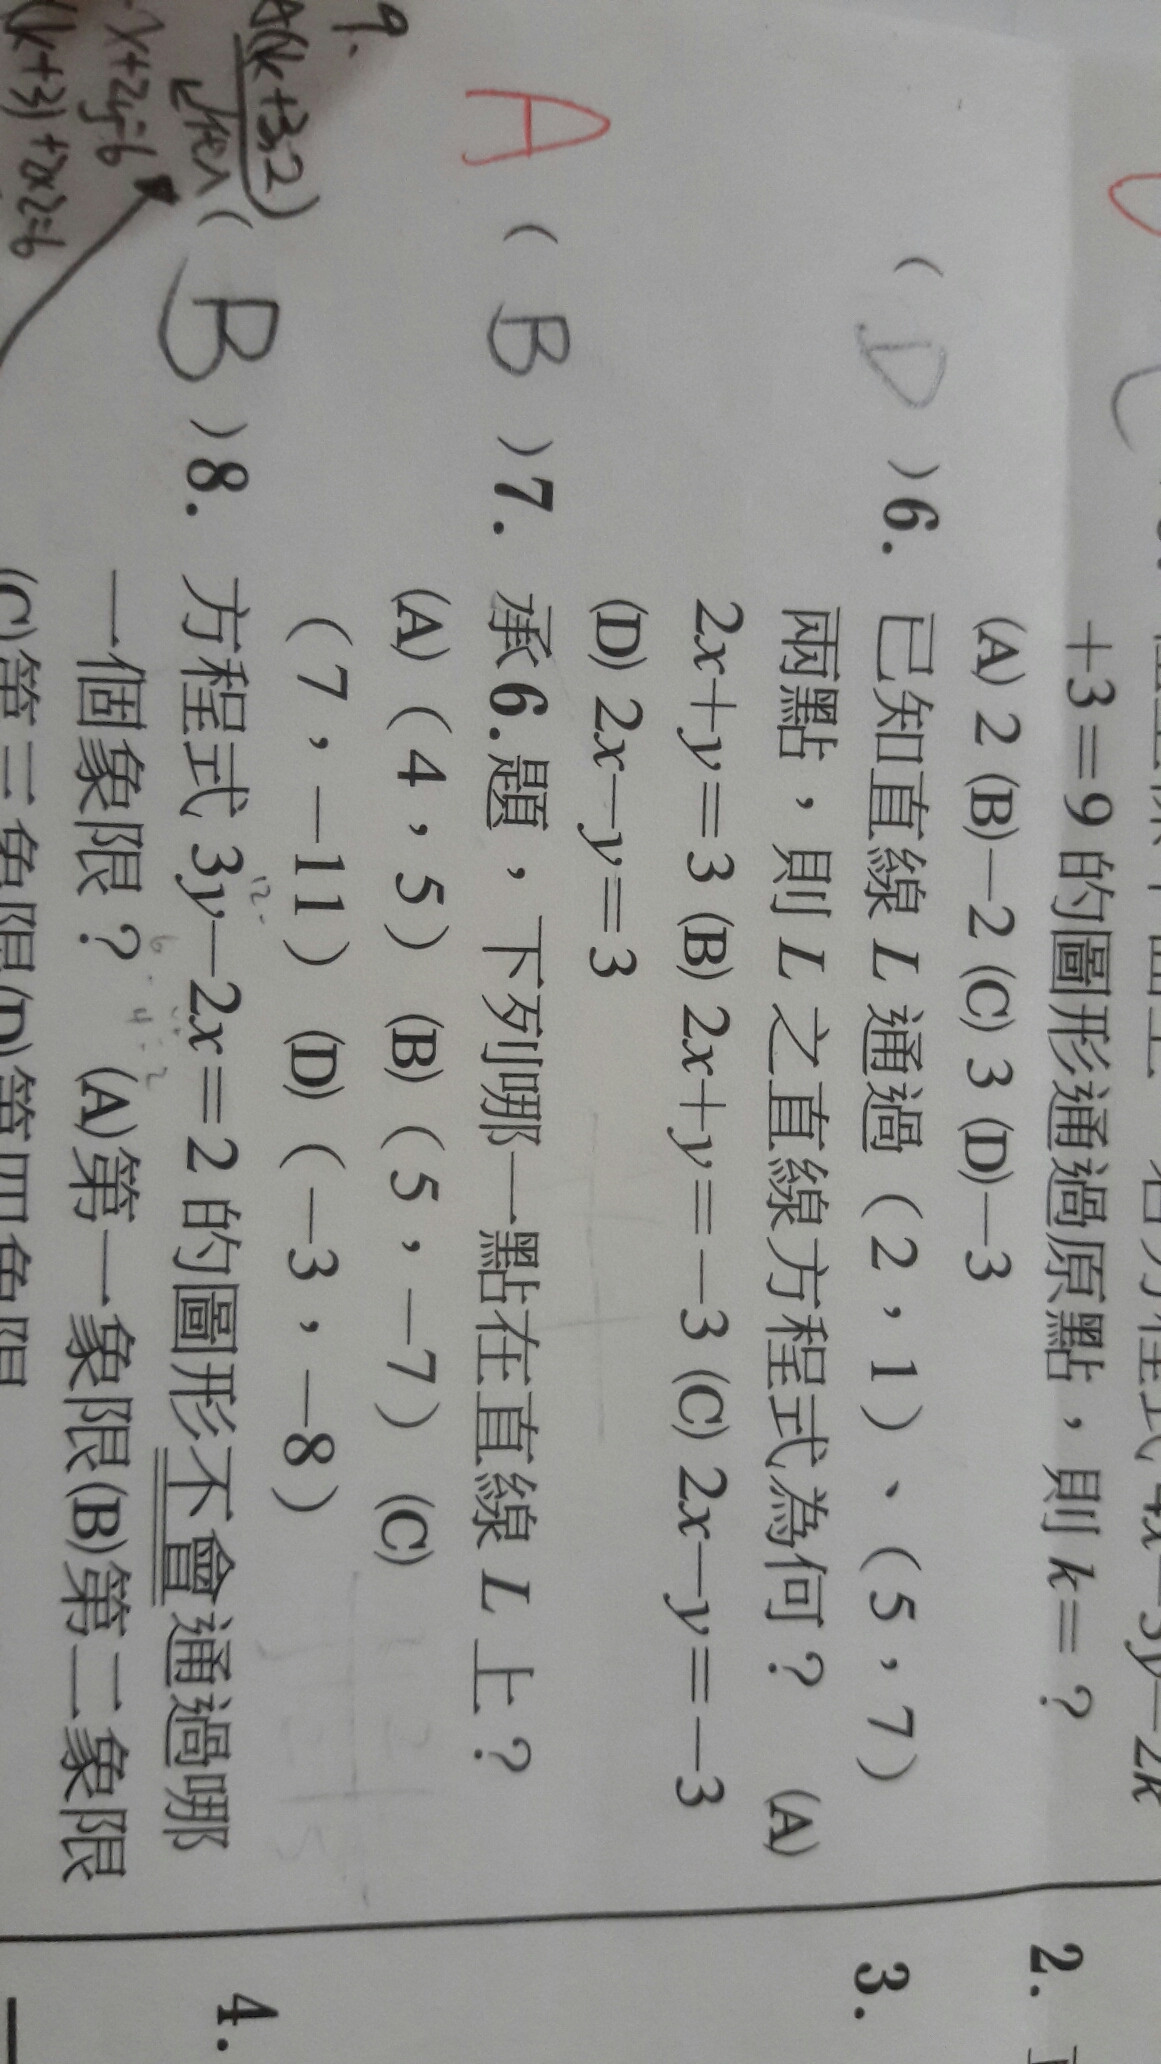 +3=9的圖形通過原點,則k=?
(A) 2 (B)−2 (C) 3 (D)−3
( D )6. 已知直線L通過(2,1)、(5,7)
兩點,則L之直線方程式為何? (A)
2x+y=3 (B) 2x+y=−3 (C) 2x−y=−3
(D) 2x−y=3
A ( B )7. 承6.題,下列哪一點在直線L上?
(A)(4,5) (B)(5,−7) (C)
(7,−11) (D)(−3,−8)
( B )8. 方程式3y−2x=2的圖形不會通過哪
一個象限? (A)第一象限(B)第二象限
(C)第三象限(D)第四象限
9.
A(k+3,2)
代入
-x+2y=6
(k+3)+2x2=6
2.
3.
4.